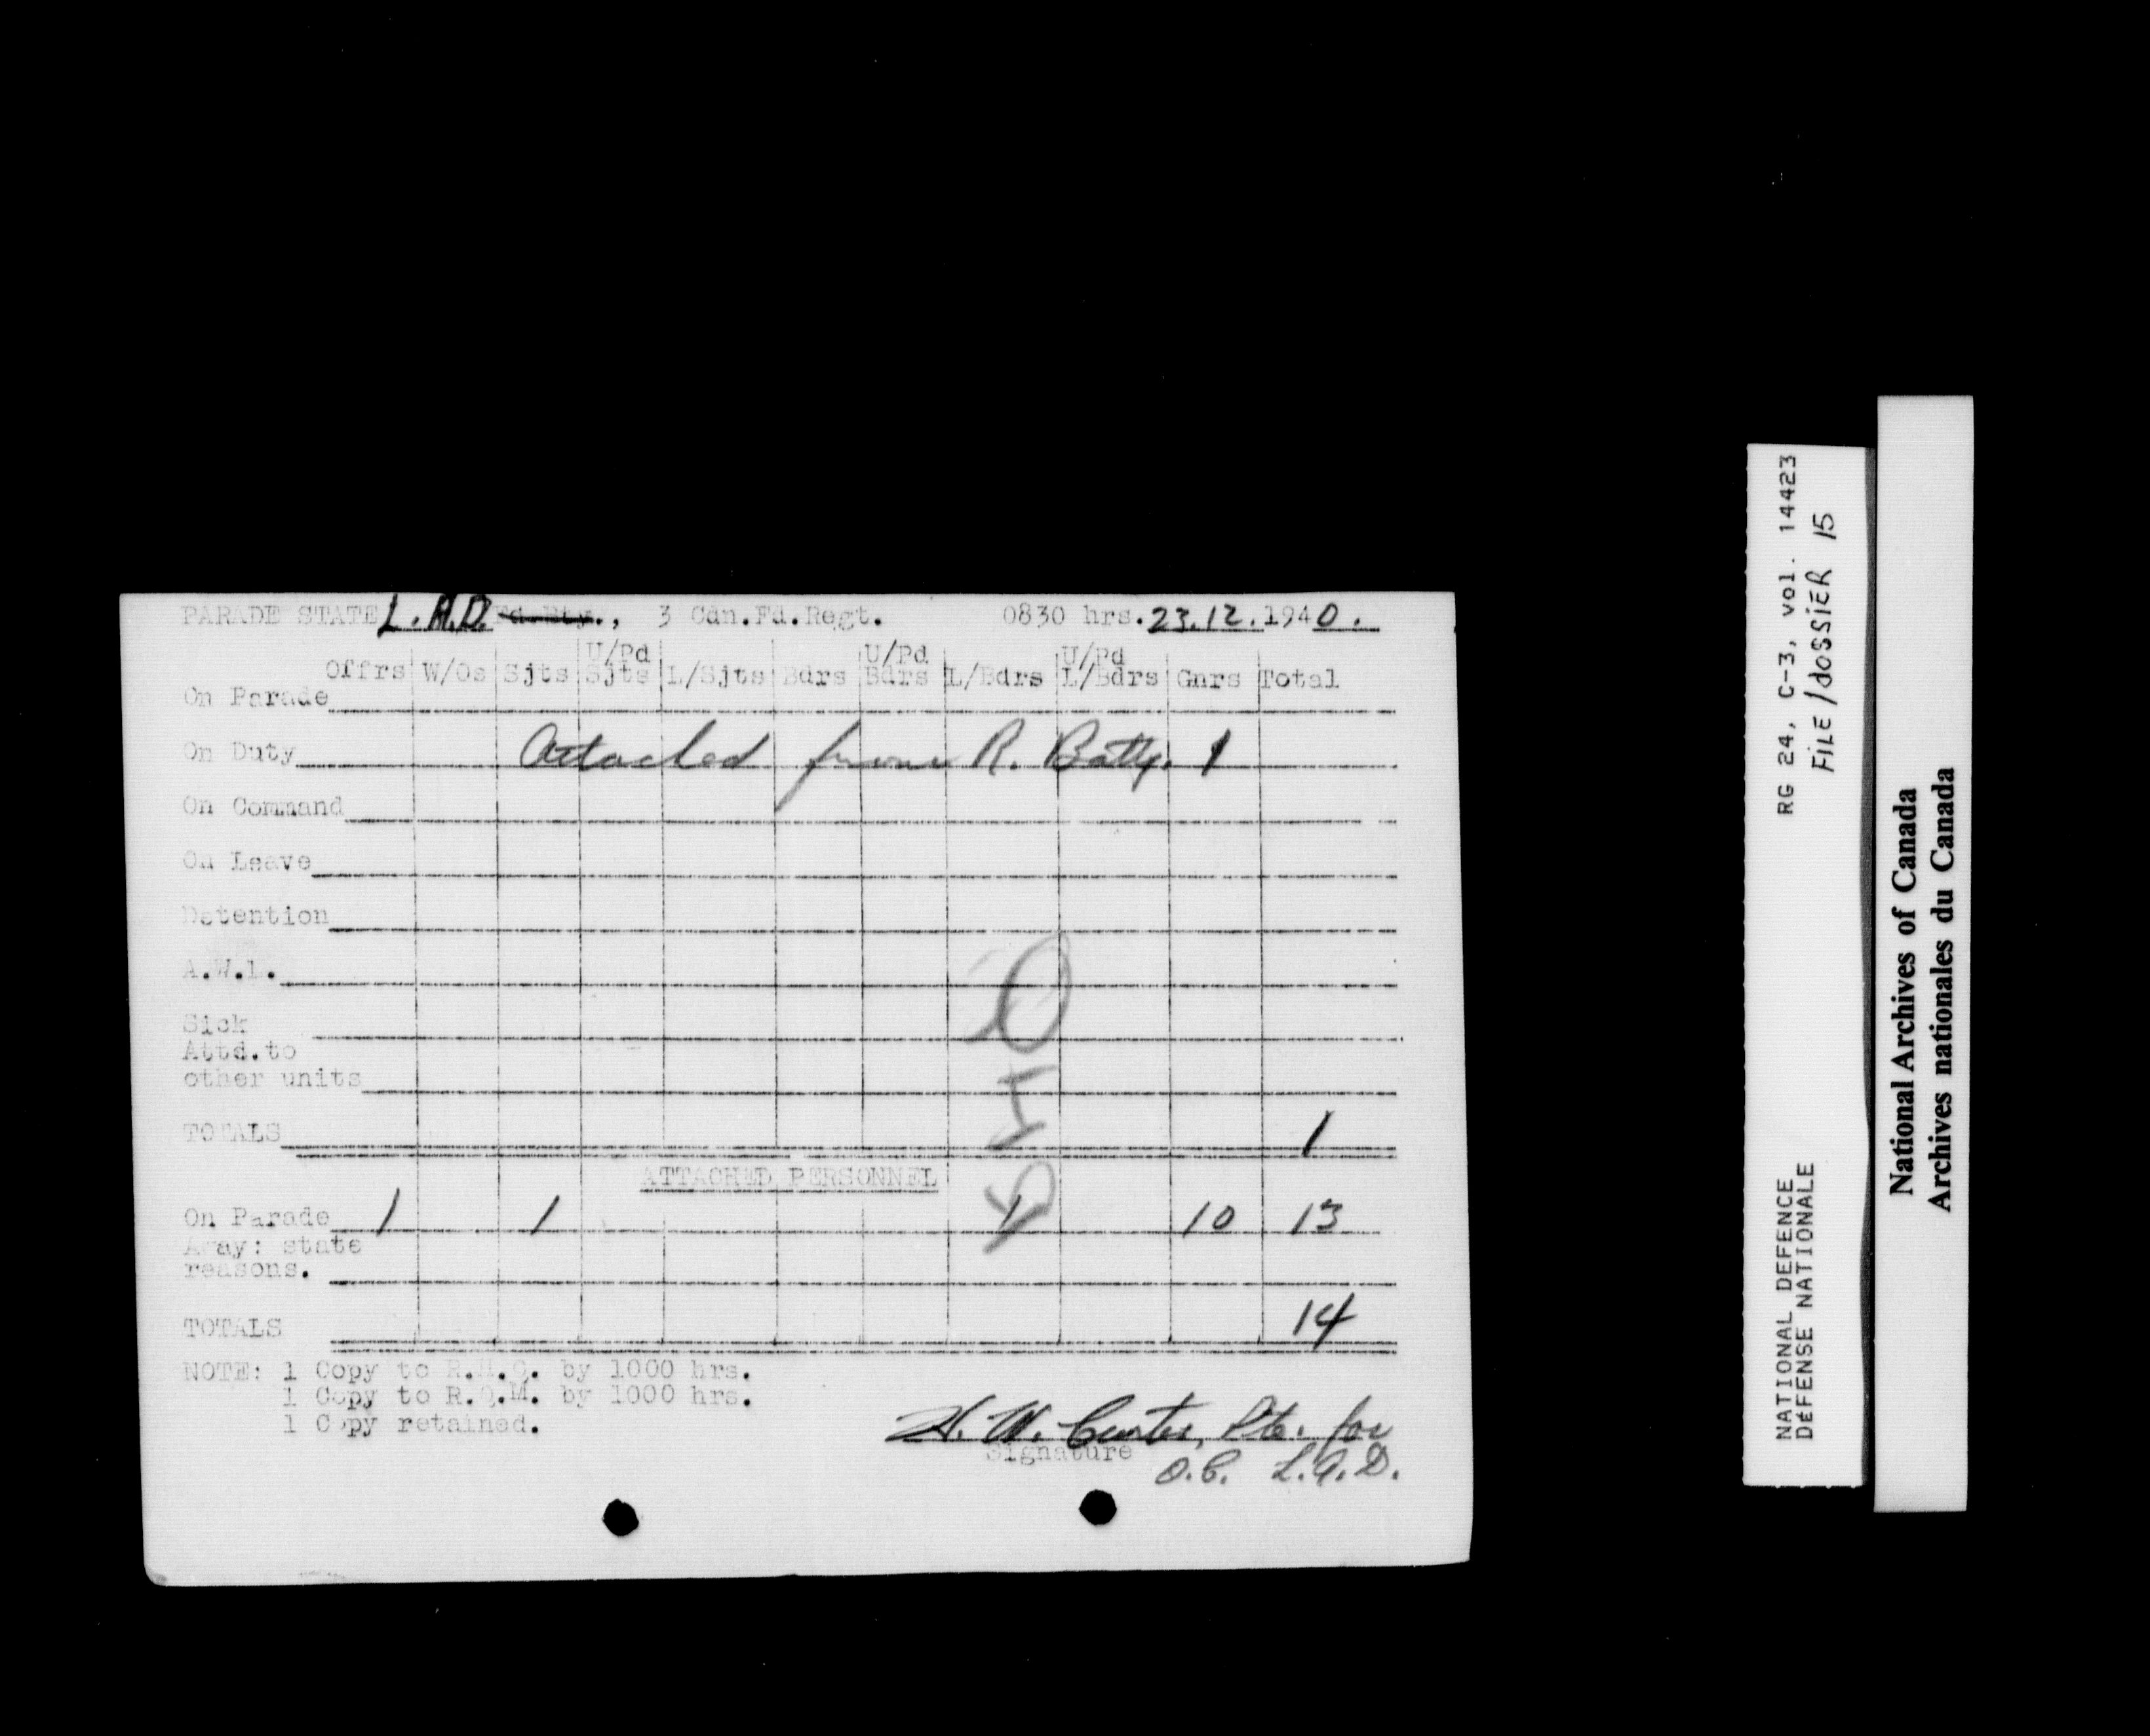 PARADE STATE L.A.D. Fd.Bty., 3 Cdn.Fd.Regt. 0830 hrs. 23.12.1940.
Offrs W/Os Sjts U/Pd Sjts L/Sjts Bdrs U/Pd Bdrs L/Bdrs U/Pd L/Bdrs Gnrs Total
On Parade
On Duty Attached from R. Batty. 1
On Command
On Leave
Detention
A.W.L.
Sick
Attd.to
other units
TOTALS 1
ATTACHED PERSONNEL
On Parade 1 1 1 10 13
Away: state
reasons.
TOTALS 14
NOTE: 1 Copy to R.H.Q. by 1000 hrs.
1 Copy to R.Q.M. by 1000 hrs.
1 Copy retained.
H. W. Carter, Pte. for
Signature
O.C. L.A.D.
NATIONAL DEFENCE RG 24, C-3, vol. 14423
DÉFENSE NATIONALE FILE/dOSSIER 15
National Archives of Canada
Archives nationales du Canada